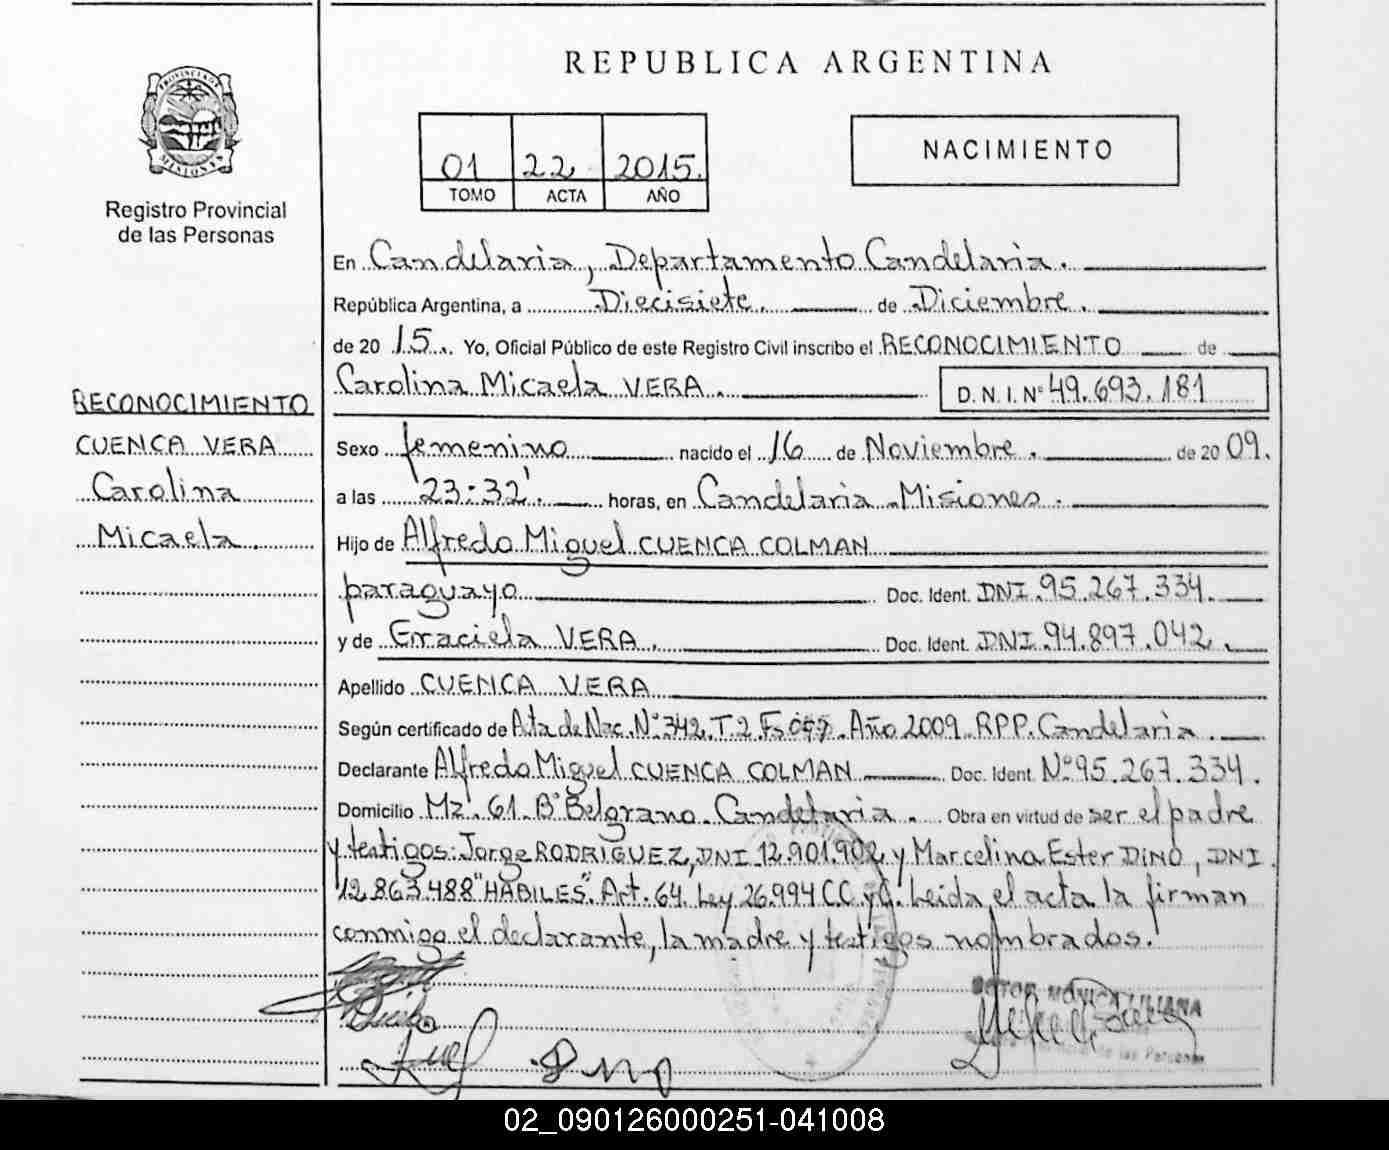 REPUBLICA ARGENTINA
PROVINCIA DE
MISIONES
Registro Provincial
de las Personas
01 22 2015.
TOMO ACTA AÑO
NACIMIENTO
En Candelaria, Departamento Candelaria.
República Argentina, a Diecisiete. de Diciembre.
de 20 15. Yo, Oficial Público de este Registro Civil inscribo el RECONOCIMIENTO de
Carolina Micaela VERA. D. N. I. Nº 49.693.181
RECONOCIMIENTO
CUENCA VERA
Carolina
Micaela.
Sexo femenino nacido el 16 de Noviembre. de 20 09.
a las 23:32'. horas, en Candelaria Misiones.
Hijo de Alfredo Miguel CUENCA COLMAN
paraguayo Doc. Ident. DNI.95.267.334.
y de Graciela VERA. Doc. Ident. DNI.94.897.042.
Apellido CUENCA VERA
Según certificado de Nac. Nº 342. T.2 Año 2009. RPP. Candelaria.
Declarante Alfredo Miguel CUENCA COLMAN Doc. Ident. Nº95.267.334.
Domicilio Mz. 61. Bº Belgrano. Candelaria. Obra en virtud de ser el padre
y testigos: Jorge RODRIGUEZ, DNI 12.901.902 y Marcelina Ester DINO, DNI
12.863.488 "HABILES". Art. 64. Ley 26.994 C.C. y C. Leida el acta la firman
conmigo el declarante, la madre y testigos nombrados.
MONICA LILIANA
de las Personas
02_090126000251-041008